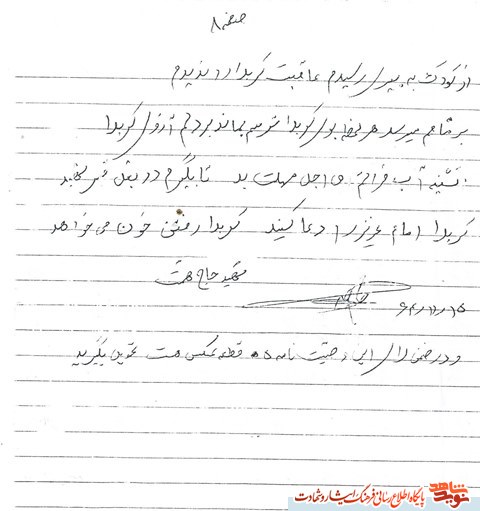 صفحه ۸
از کودکی به پیری رسیدم عاقبت کربلا را ندیدم
بر مشامم میرسد هر لحظه بوی کربلا ترسم بماند بر دلم آرزوی کربلا
تشنه آب فراتم ای اجل مهلت بده تا بگیرم در بغل قبر شهید
کربلا امام عزیز را دعا کنید کربلا رفتن خون می‌خواهد
شهید حاج همت
۶۴/۱۱/۱۵
و در ضمن لای این وصیت نامه ۵ قطعه عکس هست تحویل بگیرید
نوید شاهد
پایگاه اطلاع رسانی فرهنگ ایثار و شهادت